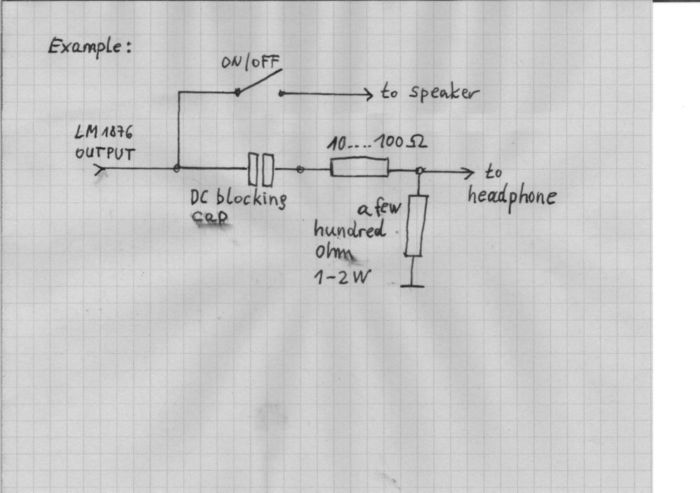 Example:
ON/OFF
to speaker
LM1876
OUTPUT
10....100Ω
to
headphone
DC blocking
cap
a few
hundred
Ohm
1-2W